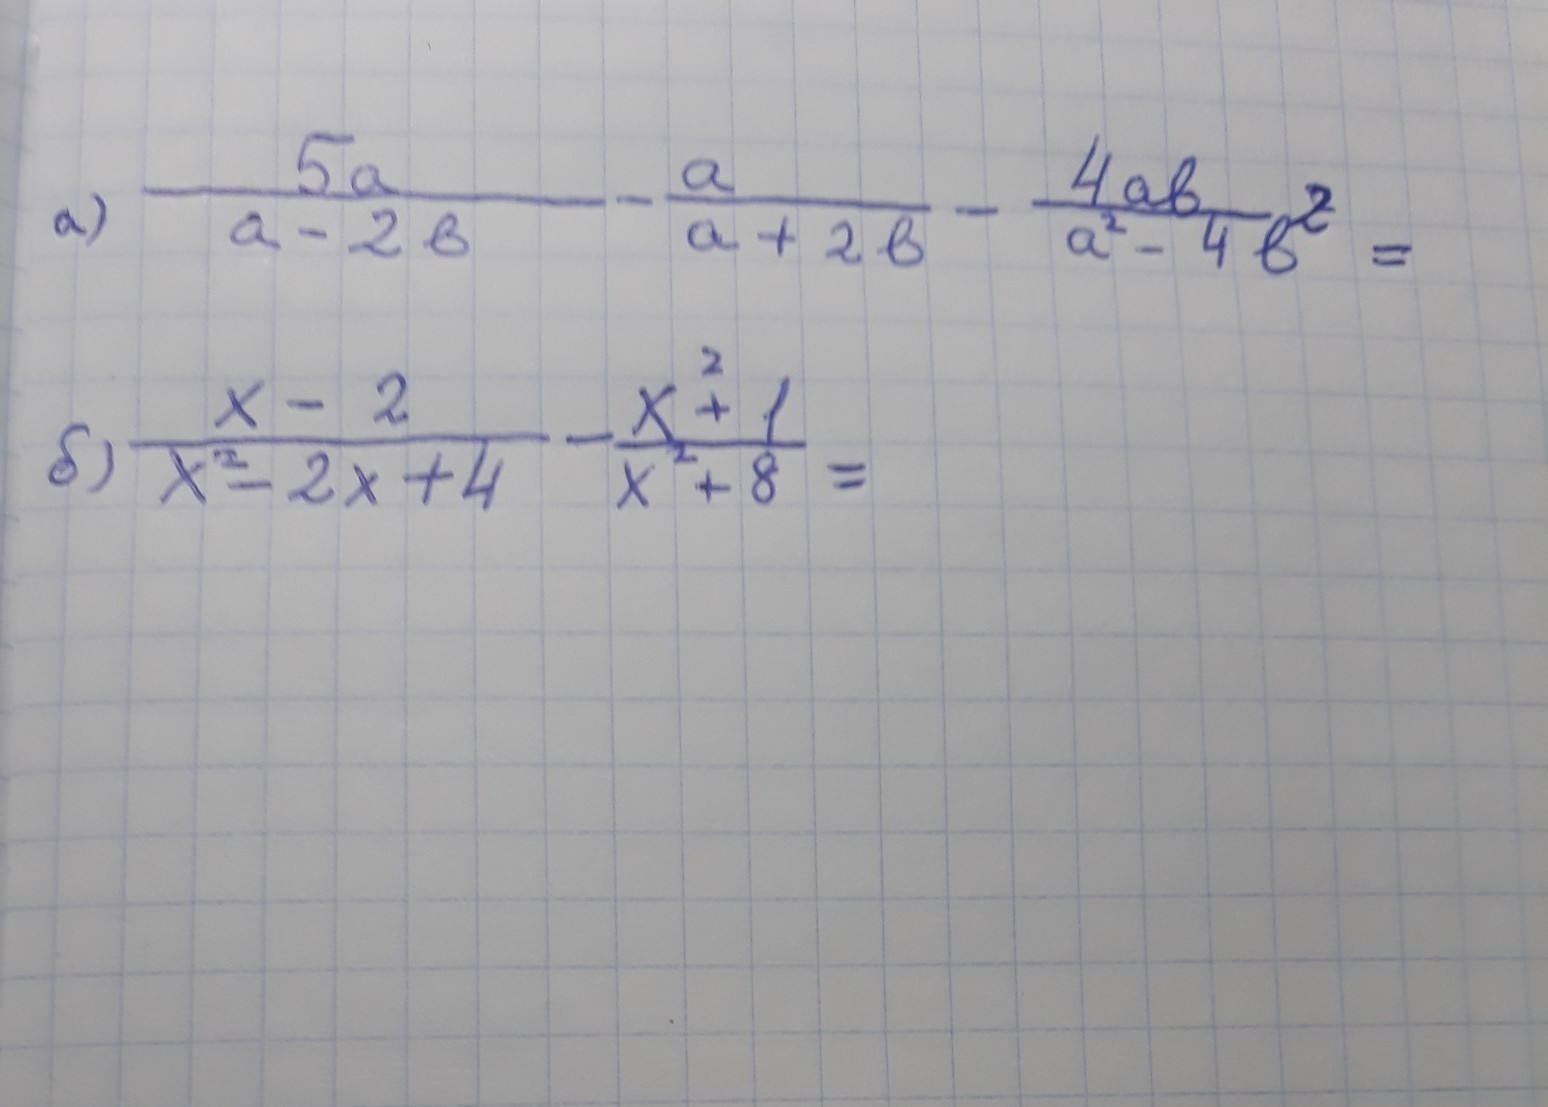 а) 5a/(a - 2в) - a/(a + 2в) - 4aв/(a² - 4в²) =
б) (x - 2)/(x² - 2x + 4) - (x² + 1)/(x² + 8) =